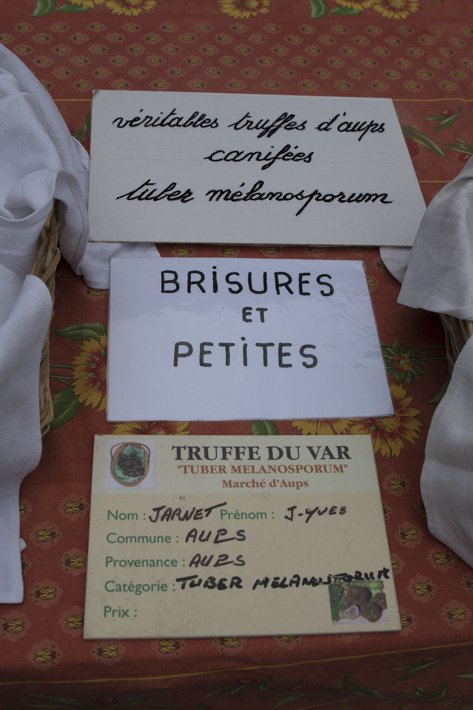 véritables truffes d'aups
canifées
tuber mélanosporum
BRISURES
ET
PETITES
TRUFFE DU VAR
"TUBER MELANOSPORUM"
Marché d'Aups
Nom : JARNET Prénom : J-YVES
Commune : AUPS
Provenance : AUPS
Catégorie : TUBER MELANOSPORUM
Prix :